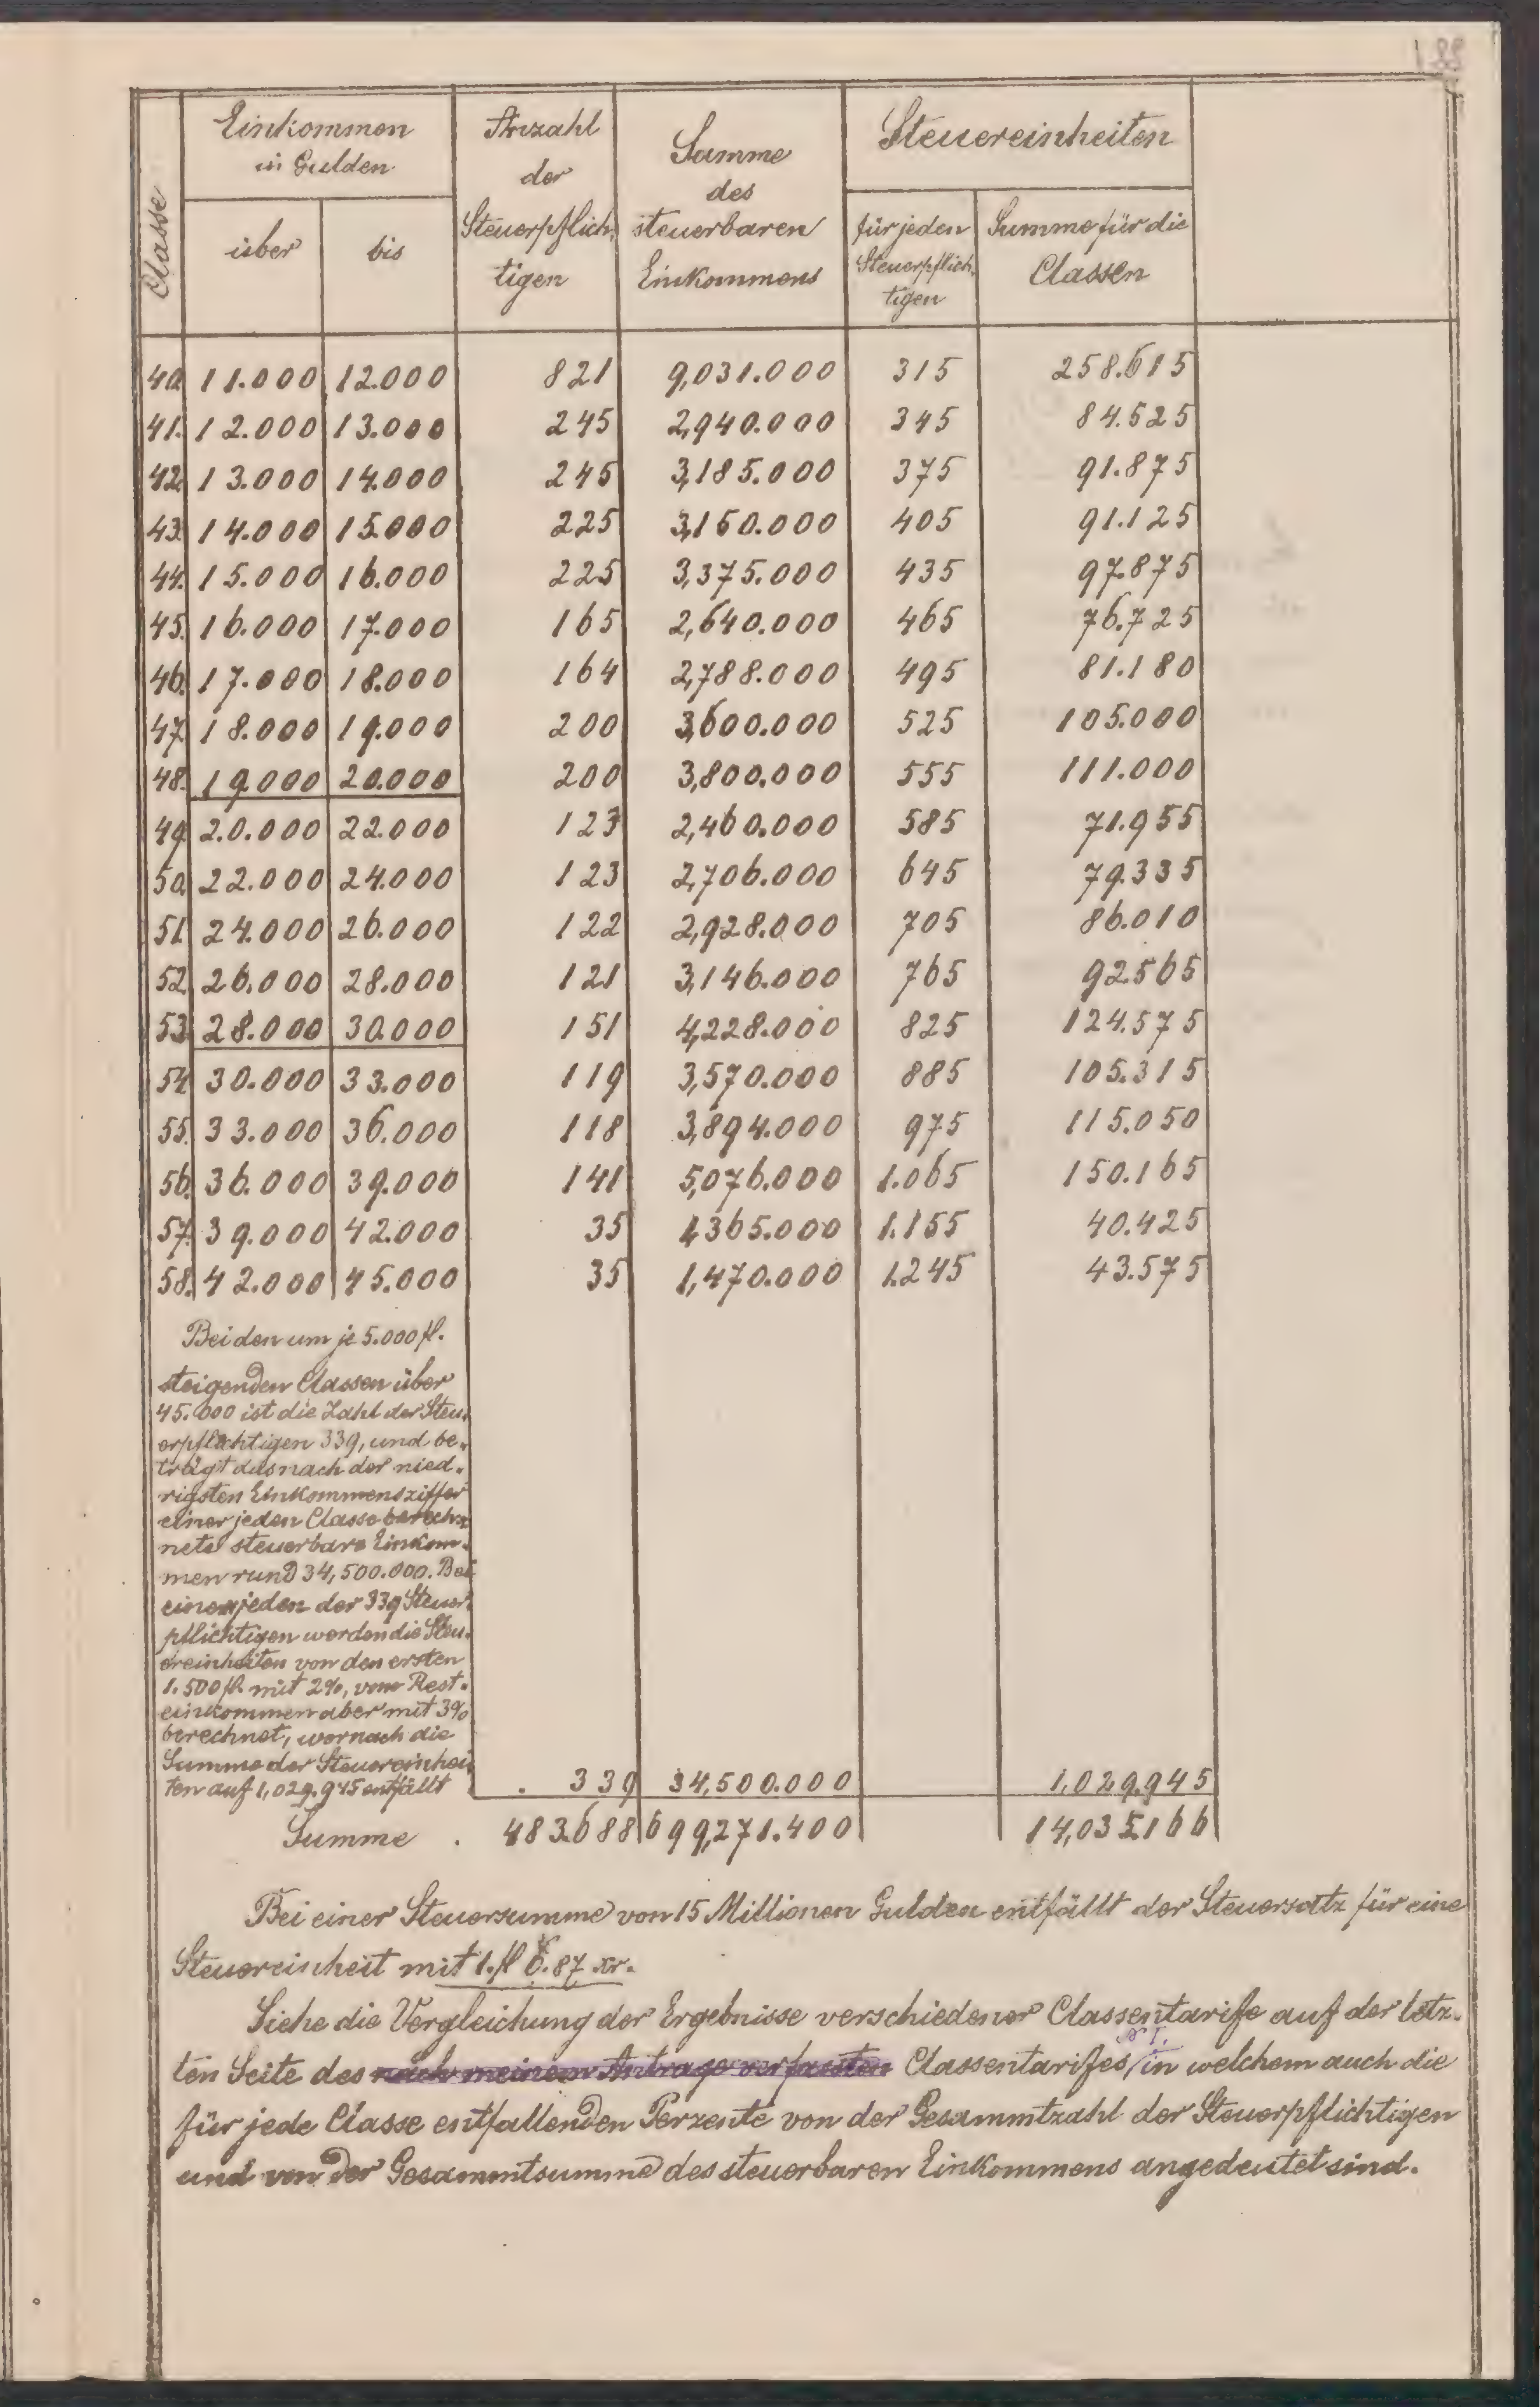 188
Classe
Einkommen
in Gulden
über
bis
Anzahl
der
Steuerpflich-
tigen
Summe
des
steuerbaren
Einkommens
Steuereinheiten
für jeden
Steuerpflich-
tigen
Summe für die
Classen
40. 11.000 12.000 821 9,031.000 315 258.615
41. 12.000 13.000 245 2,940.000 345 84.525
42. 13.000 14.000 245 3,185.000 375 91.875
43. 14.000 15.000 225 3,150.000 405 91.125
44. 15.000 16.000 225 3,375.000 435 97.875
45. 16.000 17.000 165 2,640.000 465 76.725
46. 17.000 18.000 164 2,788.000 495 81.180
47. 18.000 19.000 200 3,600.000 525 105.000
48. 19.000 20.000 200 3,800.000 555 111.000
49. 20.000 22.000 123 2,460.000 585 71.955
50. 22.000 24.000 123 2,706.000 645 79.335
51. 24.000 26.000 122 2,928.000 705 86.010
52. 26.000 28.000 121 3,146.000 765 92.565
53. 28.000 30.000 151 4,228.000 825 124.575
54. 30.000 33.000 119 3,570.000 885 105.315
55. 33.000 36.000 118 3,894.000 975 115.050
56. 36.000 39.000 141 5,076.000 1.065 150.165
57. 39.000 42.000 35 1,365.000 1.155 40.425
58. 42.000 45.000 35 1,470.000 1.245 43.575
Bei den um je 5.000 fl.
steigenden Classen über
45.000 ist die Zahl der Steu-
erpflichtigen 339, und be-
trägt das nach der nied-
rigsten Einkommensziffer
einer jeden Classe berech-
nete steuerbare Einkom-
men rund 34,500.000. Bei
einem jeden der 339 Steuer-
pflichtigen werden die Steu-
ereinheiten von den ersten
1.500 fl. mit 2%, vom Rest-
einkommen aber mit 3%
berechnet, wornach die
Summe der Steuereinhei-
ten auf 1,029.945 entfällt . 339 34,500.000 1,029.945
Summe . 483.688 699,271.400 14,035.166
Bei einer Steuersumme von 15 Millionen Gulden entfällt der Steuersatz für eine
Steuereinheit mit 1.fl 6.87 xr.
Siehe die Vergleichung der Ergebnisse verschiedener Classentarife auf der letz-
ten Seite des nach meinem Antrage verfassten Classentarifes N I. in welchem auch die
für jede Classe entfallenden Perzente von der Gesammtzahl der Steuerpflichtigen
und von der Gesammtsumme des steuerbaren Einkommens angedeutet sind.